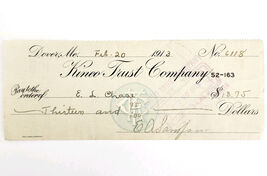 Dover, Me. Feb. 20 1913 No. 6118
Kineo Trust Company 52-163
Pay to the order of E. L. Chase $13.75
Thirteen and 75/100 Dollars